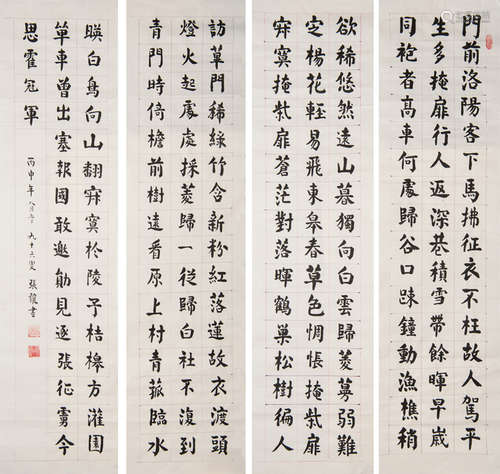 門前洛陽客下馬拂征衣不枉故人駕平
生多掩扉行人返深巷積雪帶餘暉早歲
同袍者高車何處歸谷口疎鐘動漁樵稍
欲稀悠然遠山暮獨向白雲歸菱蔓弱難
定楊花輕易飛東皋春草色惆悵掩柴扉
寂寞掩柴扉蒼茫對落暉鶴巢松樹徧人
訪蓽門稀綠竹含新粉紅落蓮故衣渡頭
燈火起處處採菱歸一從歸白社不復到
青門時倚檐前樹遠看原上村青菰臨水
暎白鳥向山翻寂寞於陵子桔槔方灌園
單車曾出塞報國敢邀勛見逐張征虜今
思霍冠軍
丙申年 九十三叟 張 書